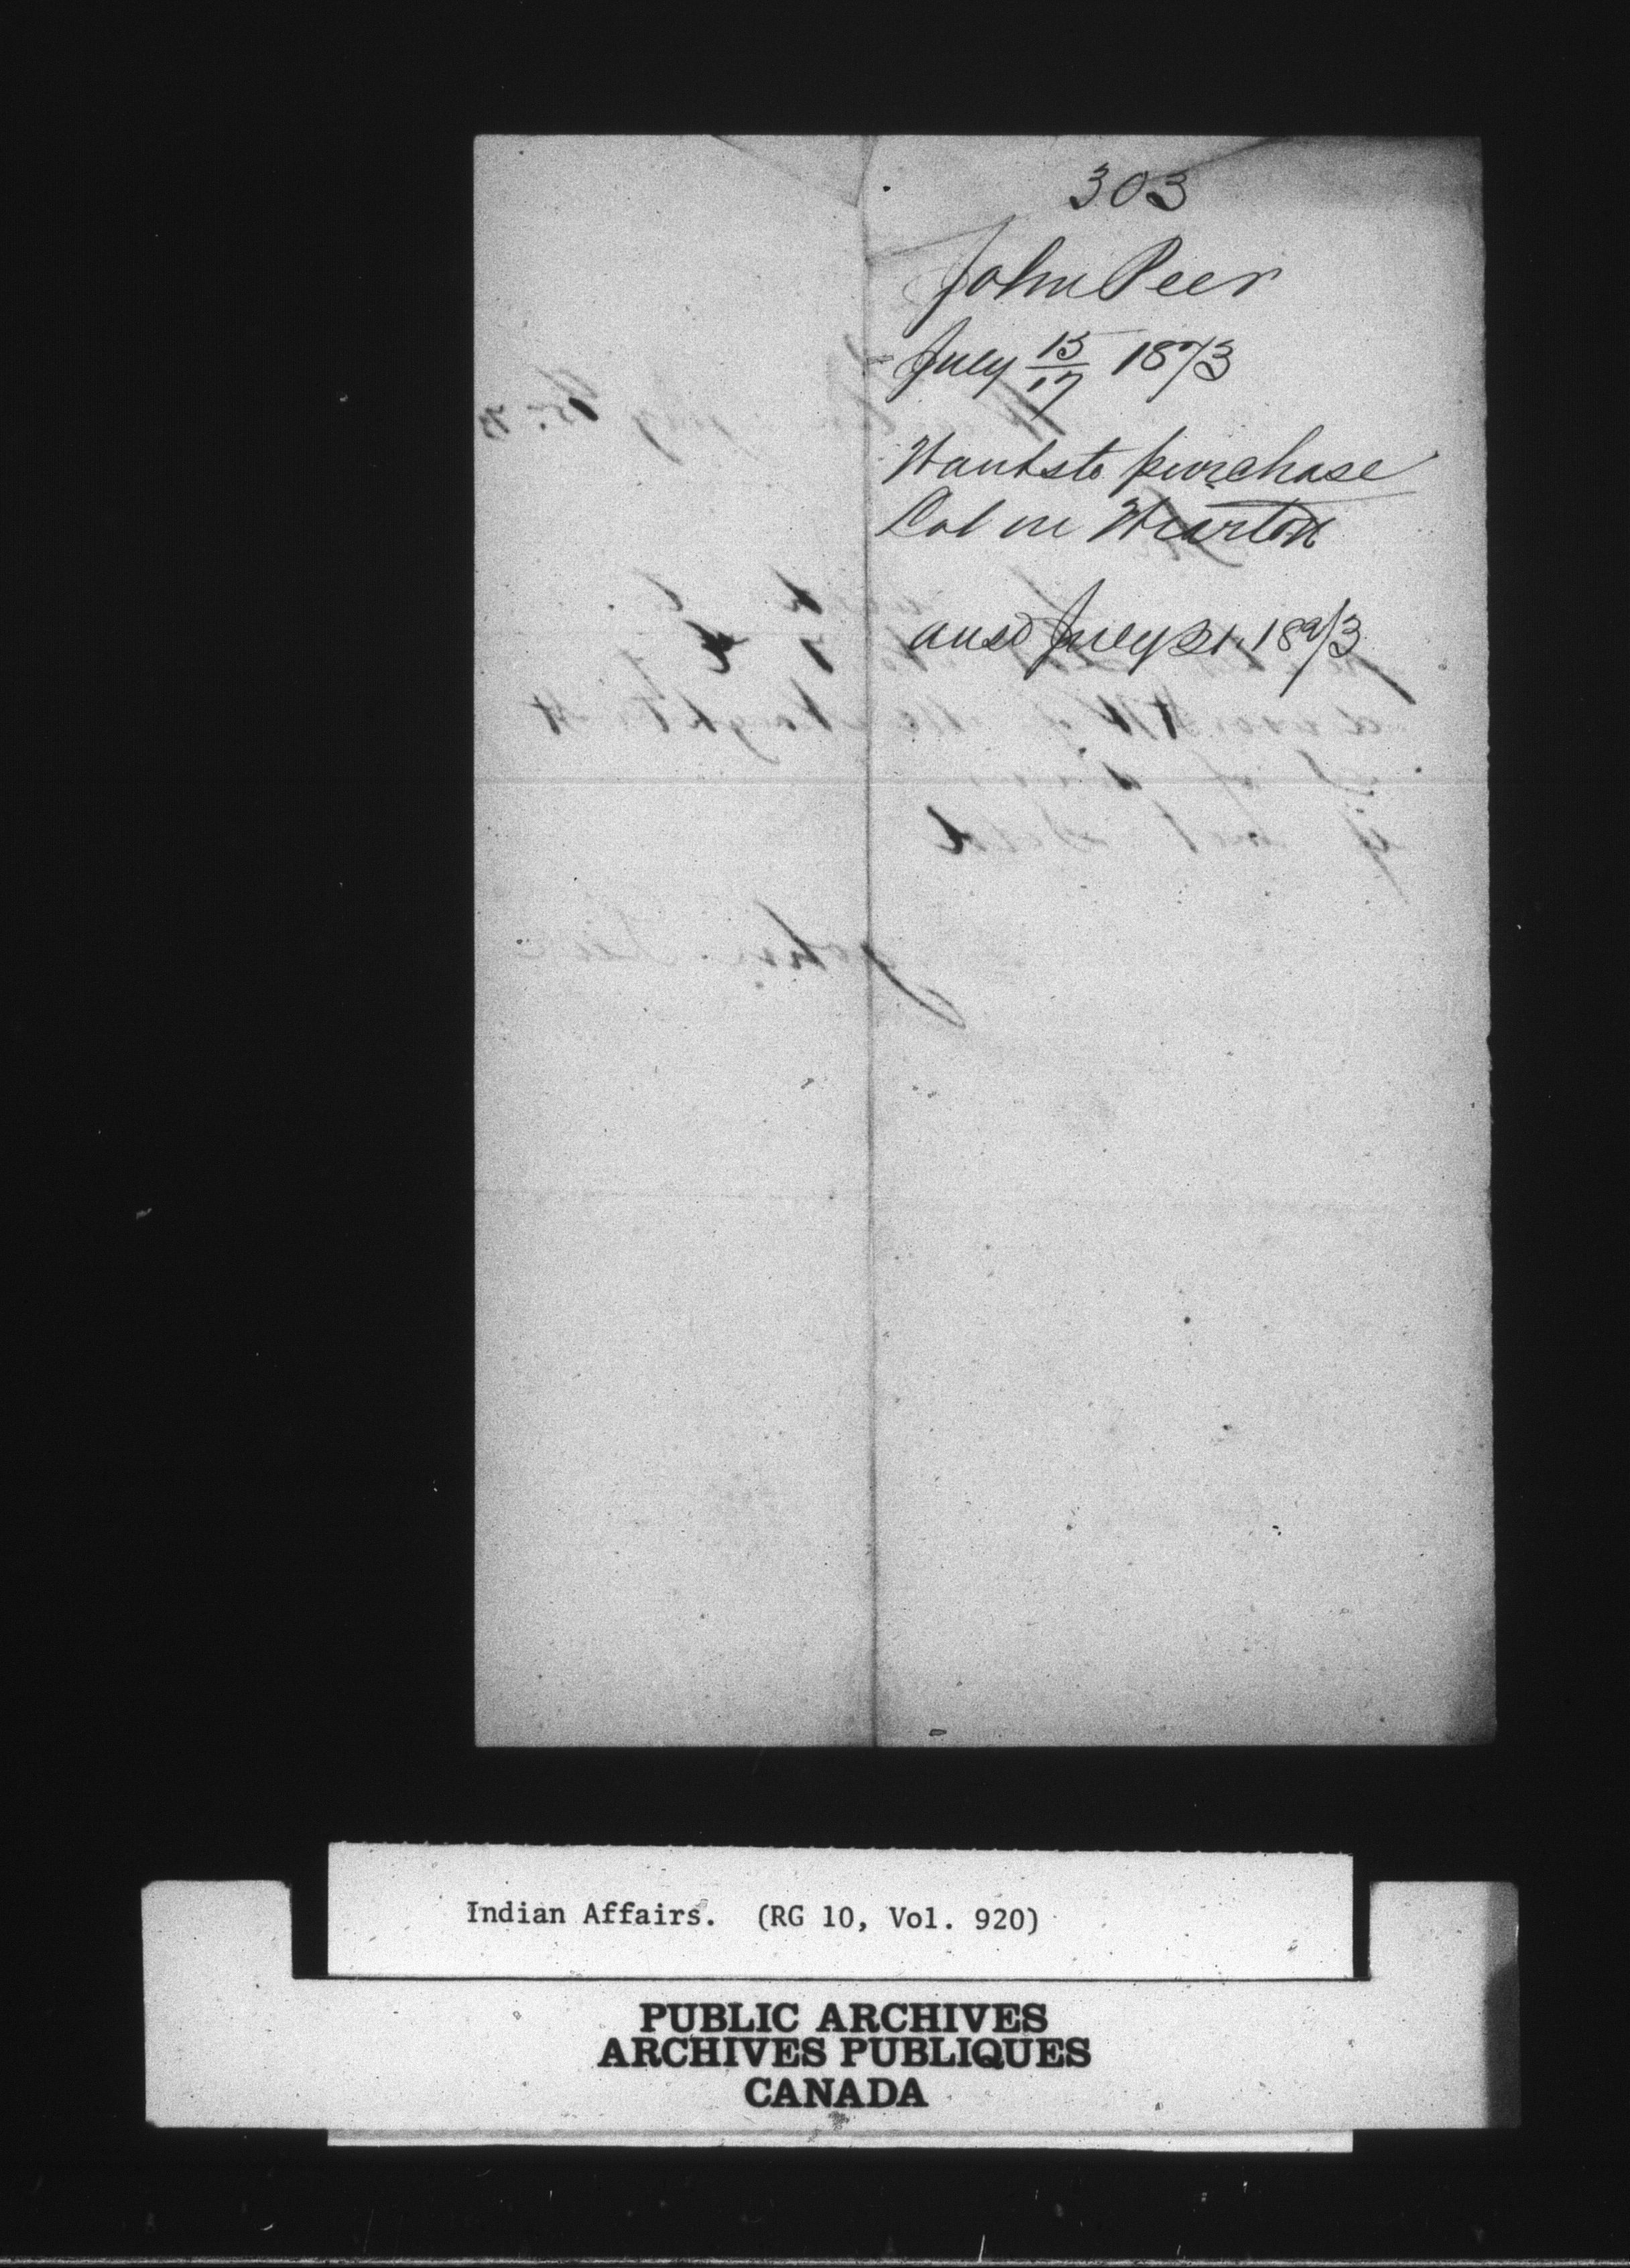 303
John Peer
July 15/17 1873
Wants to purchase
Lot in Wiarton
ansd July 21. 1873
Indian Affairs. (RG 10, Vol. 920)
PUBLIC ARCHIVES
ARCHIVES PUBLIQUES
CANADA